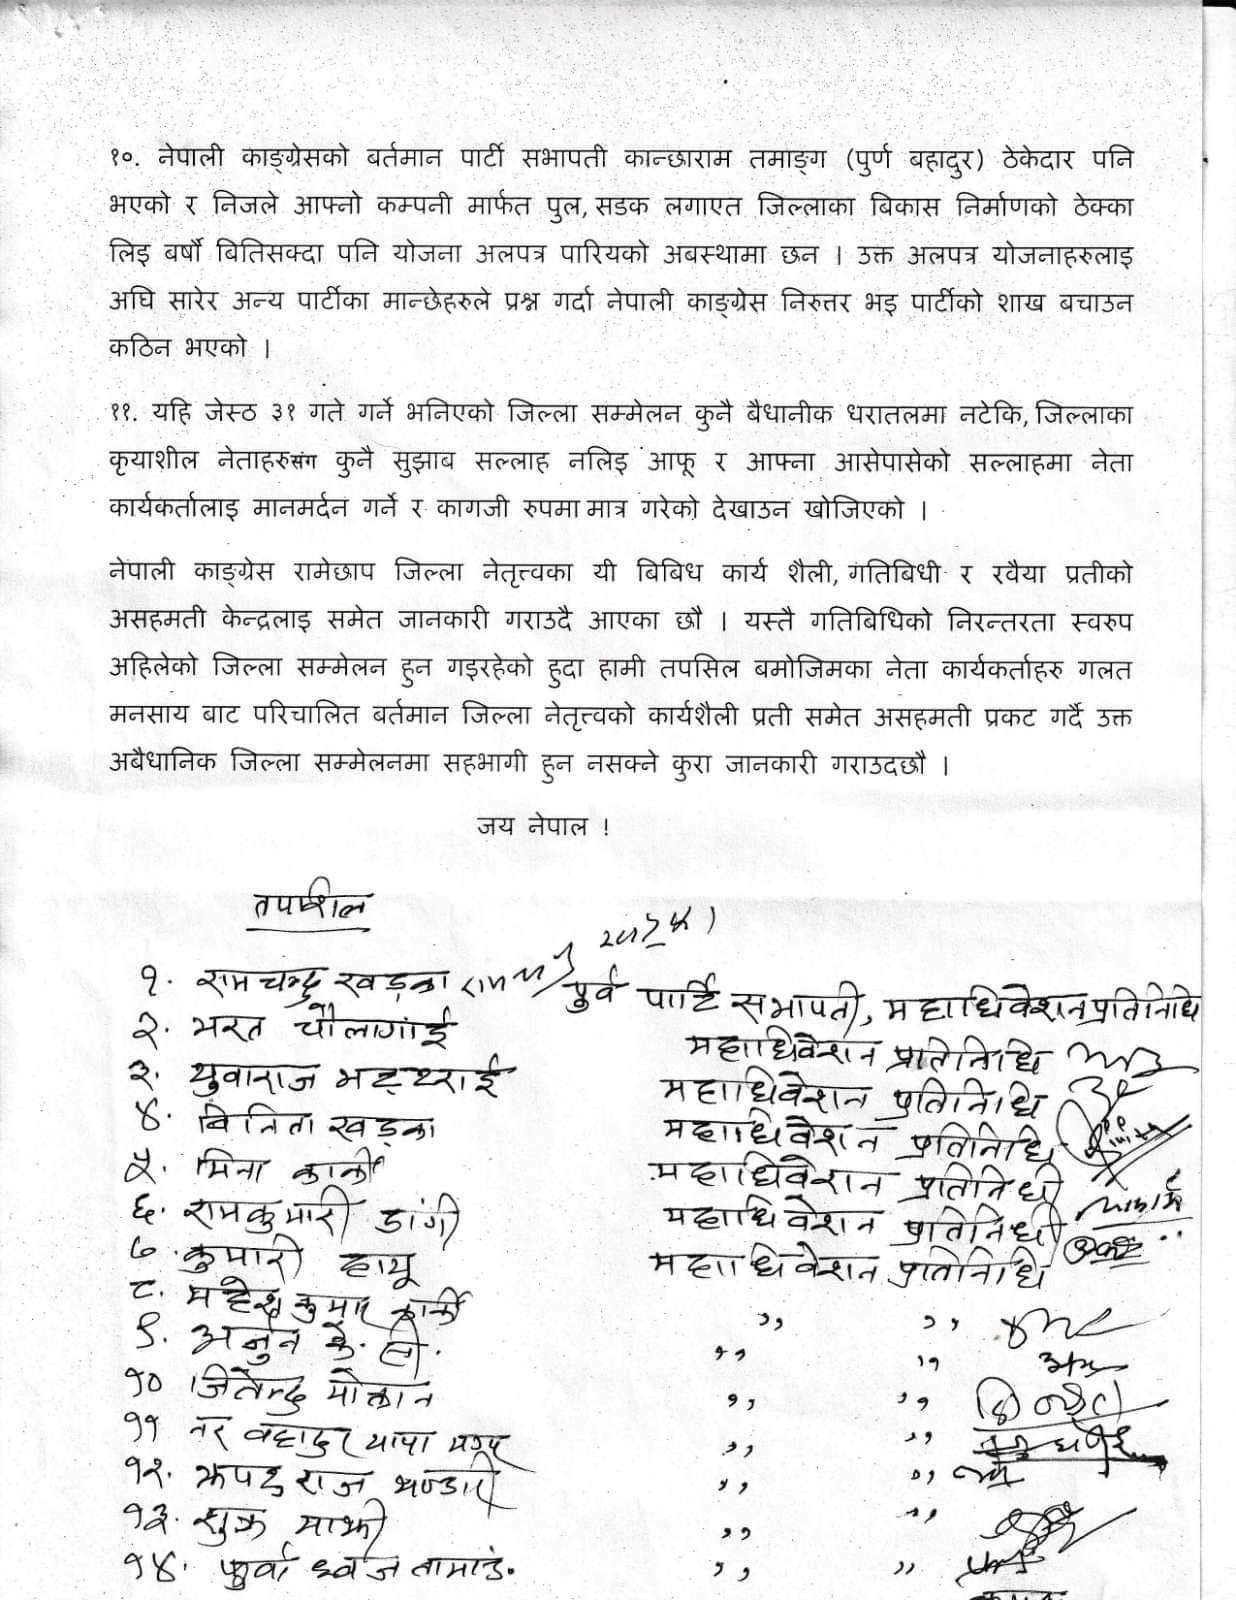 १०. नेपाली काङ्ग्रेसको बर्तमान पार्टी सभापती कान्छाराम तमाङ्ग (पुर्ण बहादुर) ठेकेदार पनि
भएको र निजले आफ्नो कम्पनी मार्फत पुल, सडक लगाएत जिल्लाका बिकास निर्माणको ठेक्का
लिइ बर्षौ बितिसक्दा पनि योजना अलपत्र पारियको अबस्थामा छन । उक्त अलपत्र योजनाहरुलाइ
अघि सारेर अन्य पार्टीका मान्छेहरुले प्रश्न गर्दा नेपाली काङ्ग्रेस निरुत्तर भइ पार्टीको शाख बचाउन
कठिन भएको ।
११. यहि जेस्ठ ३१ गते गर्ने भनिएको जिल्ला सम्मेलन कुनै बैधानीक धरातलमा नटेकि, जिल्लाका
कृयाशील नेताहरुसंग कुनै सुझाब सल्लाह नलिइ आफू र आफ्ना आसेपासेको सल्लाहमा नेता
कार्यकर्तालाइ मानमर्दन गर्ने र कागजी रुपमा मात्र गरेको देखाउन खोजिएको ।
नेपाली काङ्ग्रेस रामेछाप जिल्ला नेतृत्त्वका यी बिबिध कार्य शैली, गतिबिधी र रवैया प्रतीको
असहमती केन्द्रलाइ समेत जानकारी गराउदै आएका छौ । यस्तै गतिबिधिको निरन्तरता स्वरुप
अहिलेको जिल्ला सम्मेलन हुन गइरहेको हुदा हामी तपसिल बमोजिमका नेता कार्यकर्ताहरु गलत
मनसाय बाट परिचालित बर्तमान जिल्ला नेतृत्त्वको कार्यशैली प्रती समेत असहमती प्रकट गर्दै उक्त
अबैधानिक जिल्ला सम्मेलनमा सहभागी हुन नसक्ने कुरा जानकारी गराउदछौ ।
जय नेपाल !
तपशील
१. रामचन्द्र खड्का पुर्व पार्टि सभापती, महाधिवेशन प्रतिनिधि
२. भरत चौलागांई महाधिवेशन प्रतिनिधि
३. युवाराज भट्टराई महाधिवेशन प्रतिनिधि
४. बिनिता खड्का महाधिवेशन प्रतिनिधि
५. मिना कार्की महाधिवेशन प्रतिनिधी
६. रामकुमारी डांगी महाधिवेशन प्रतिनिधी
७. कुमारी हायू महाधिवेशन प्रतिनिधि
८. महेश कुमार कार्की ,, ,,
९. अर्जुन के. सी. ,, ,,
१० जितेन्द्र मोक्तान ,, ,,
११ नर बहादुर थापा मगर ,, ,,
१२. झपट राज भण्डारी ,, ,,
१३. शुक्र माझी ,, ,,
१४. पुर्वा ध्वज तामाङ. ,, ,,